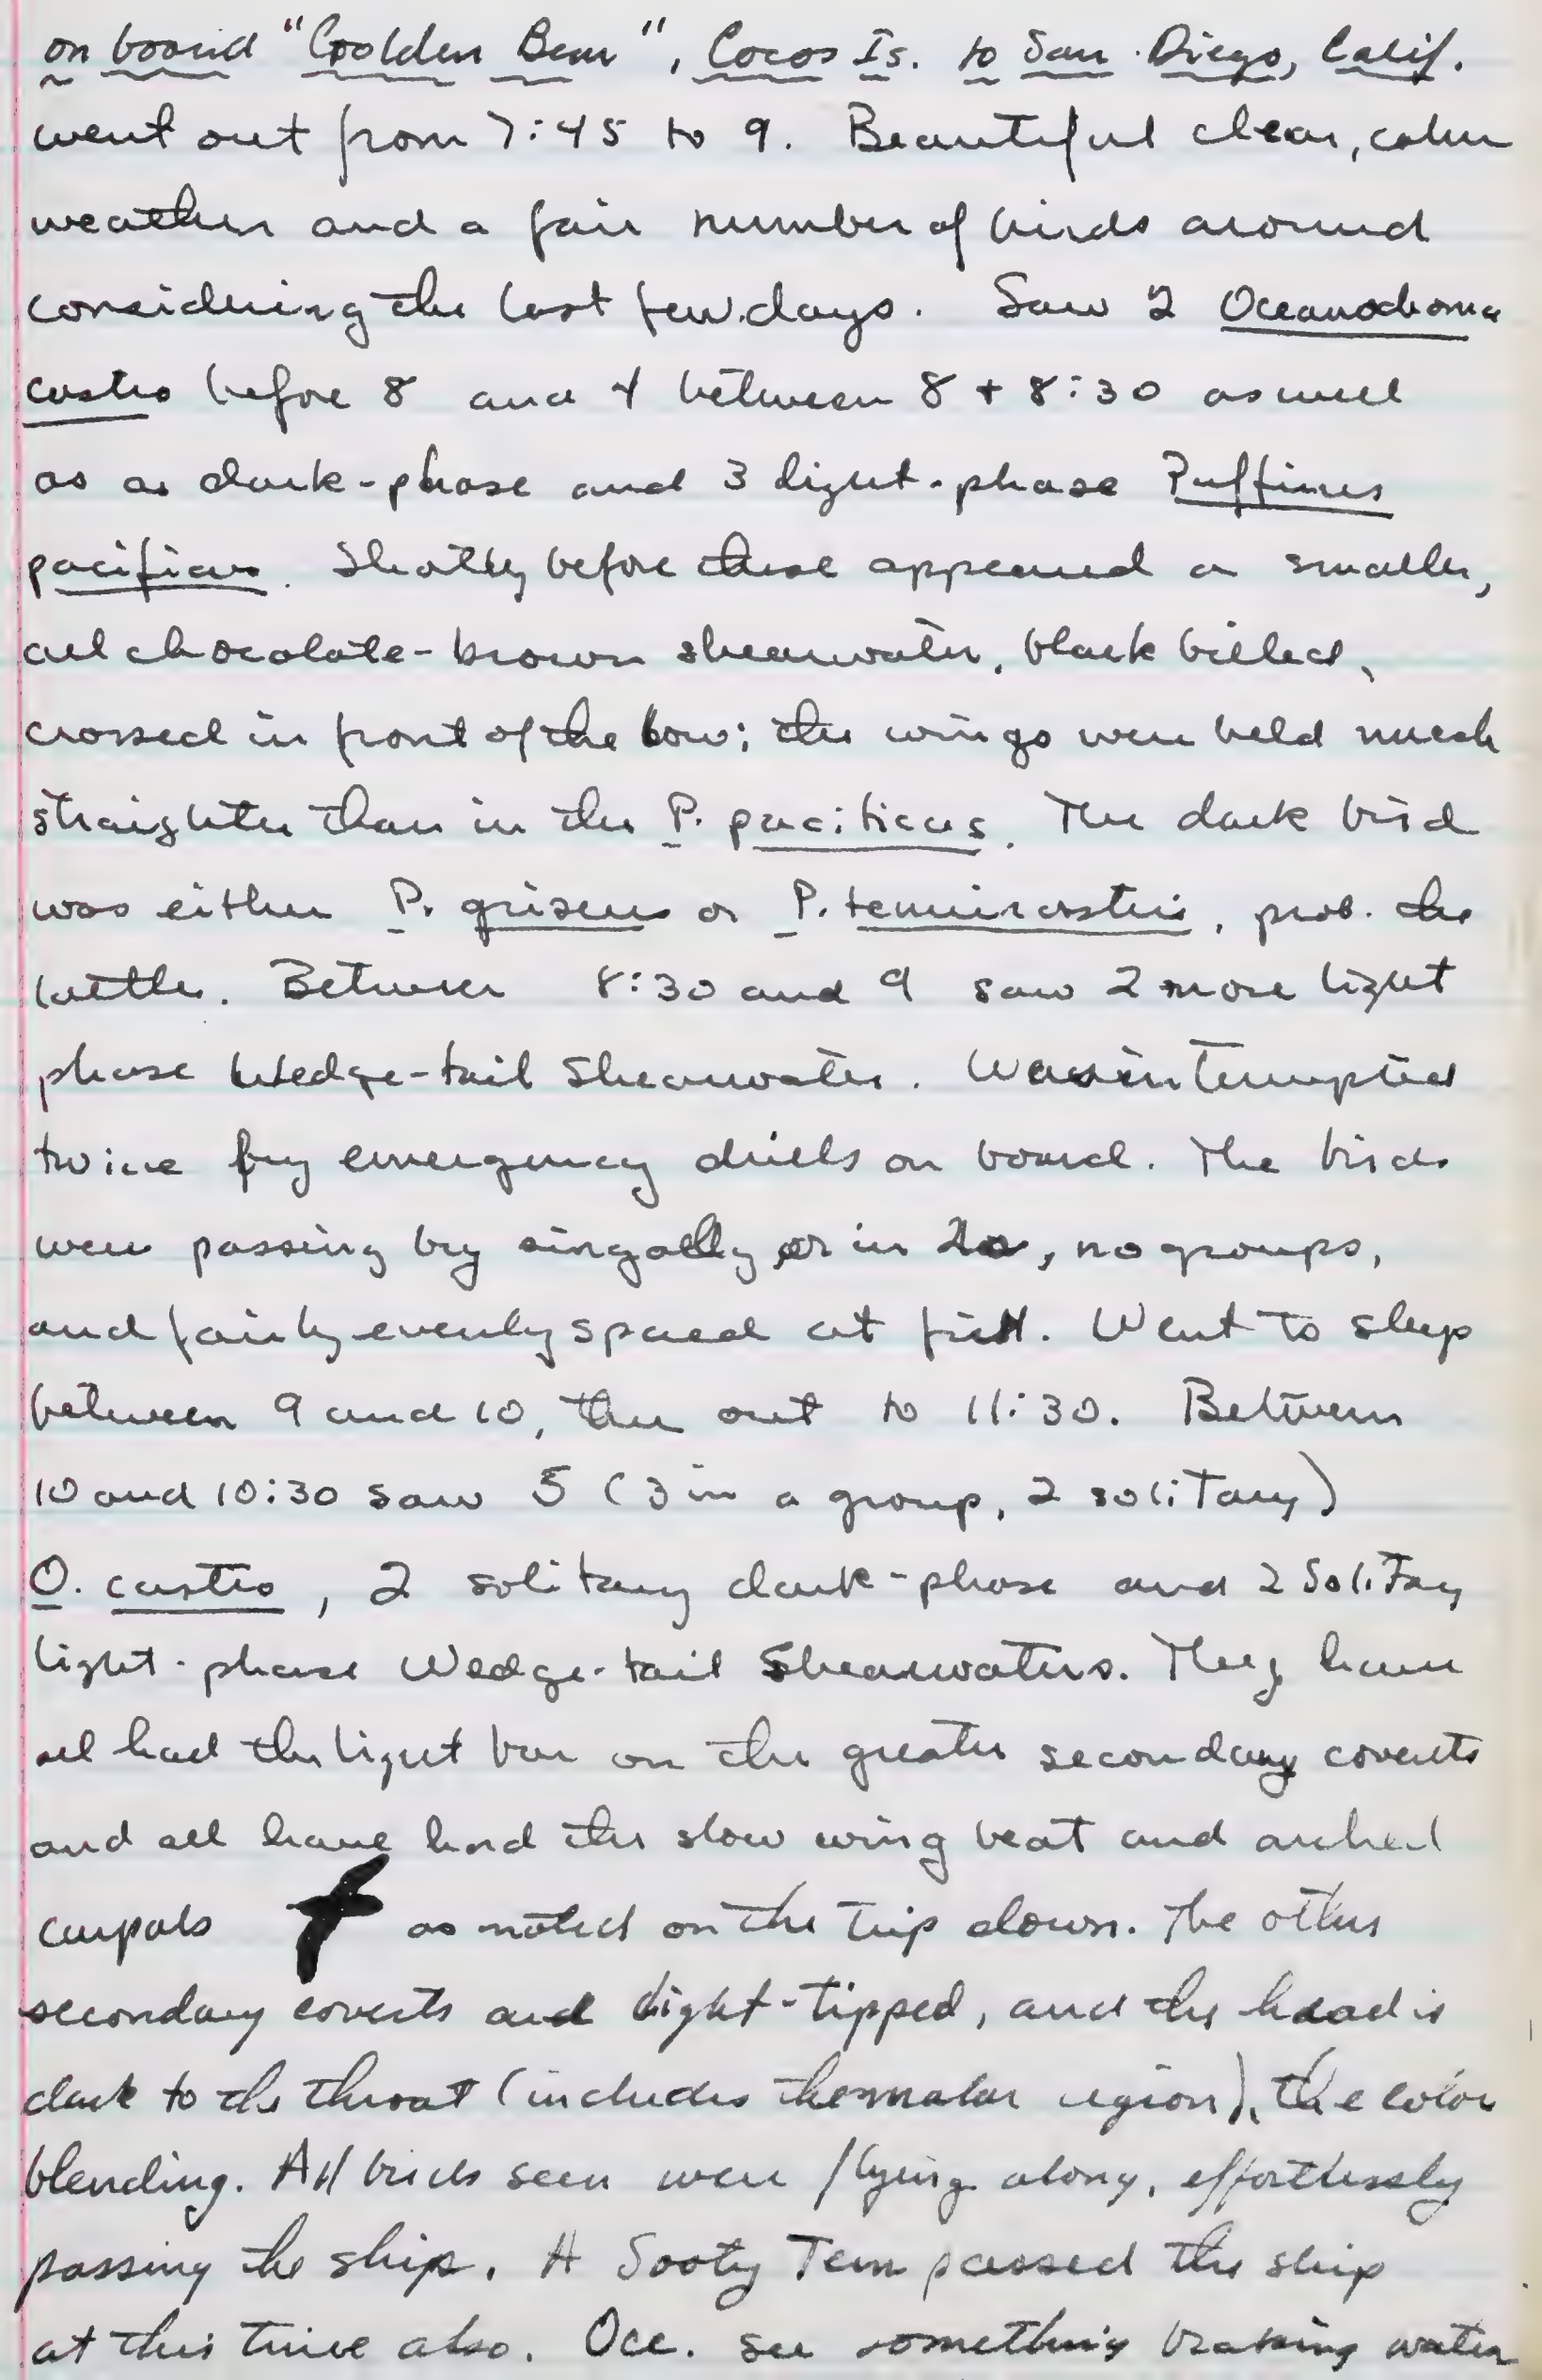 on board "Golden Bear", Cocos Is. to San Diego, Calif.
went out from 7:45 to 9. Beautiful clear, calm
weather and a fair number of birds around
considering the last few days. Saw 2 Oceanodroma
castro before 8 and 4 between 8 + 8:30 as well
as a dark-phase and 3 light-phase Puffinus
pacificus. Shortly before these appeared a smaller,
all chocolate-brown shearwater, black billed,
crossed in front of the bow; the wings were held much
straighter than in the P. pacificus. The dark bird
was either P. griseus or P. tenuirostris, prob. the
latter. Between 8:30 and 9 saw 2 more light
phase Wedge-tail Shearwater. Was interrupted
twice by emergency drills on board. The birds
were passing by singally or in 2s, no groups,
and fairly evenly spaced at first. Went to sleep
between 9 and 10, then out to 11:30. Between
10 and 10:30 saw 5 (3 in a group, 2 solitary)
O. castro, 2 solitary dark-phase and 2 solitary
light-phase Wedge-tail Shearwaters. They have
all had the light bar on the greater secondary coverts
and all have had the slow wing beat and arched
carpals as noted on the trip down. The other
secondary coverts and light-tipped, and the head is
dark to the throat (includes the malar region), the color
blending. All birds seen were flying along, effortlessly
passing the ship. A Sooty Tern passed the ship
at this time also. Occ. see something braking water